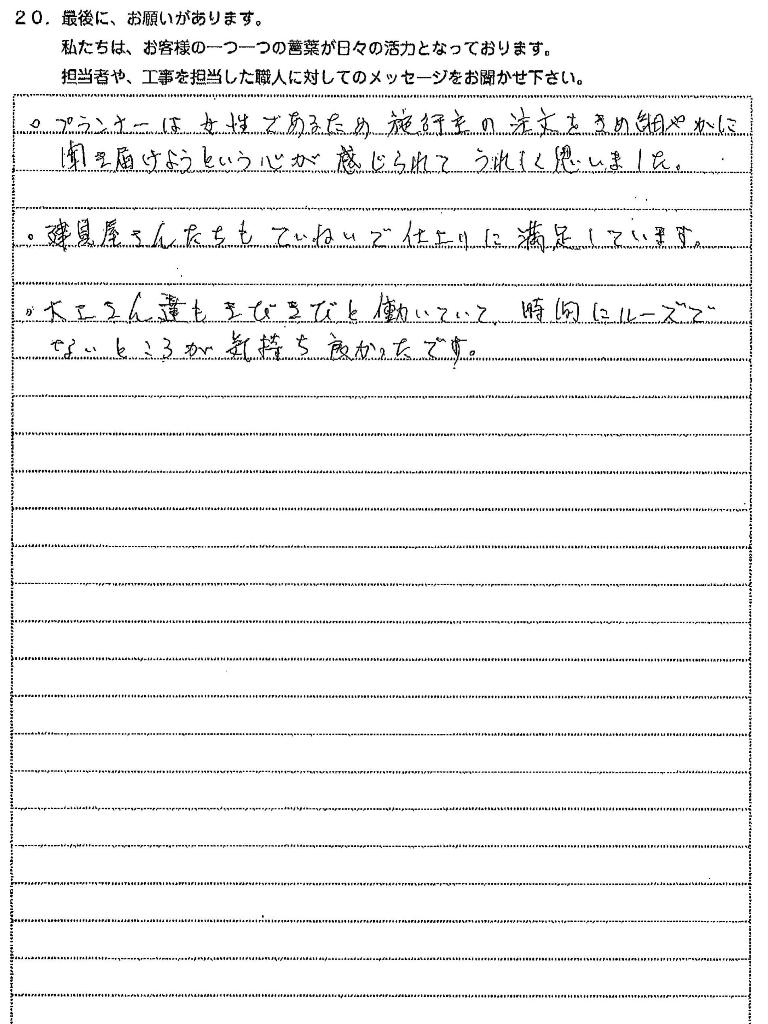 20．最後に、お願いがあります。
私たちは、お客様の一つ一つの言葉が日々の活力となっております。
担当者や、工事を担当した職人に対してのメッセージをお聞かせ下さい。
○ プランナーは女性であるため施行主の注文をきめ細やかに
聞き届けようという心が感じられてうれしく思いました。
○ 建具屋さんたちもていねいで仕上りに満足しています。
○ 大工さん達もきびきびと働いていて、時間にルーズで
ないところが気持ち良かったです。